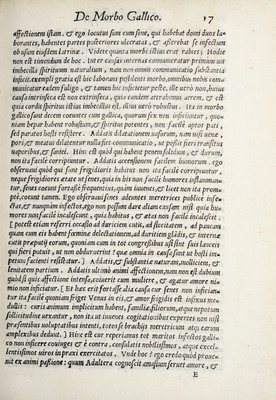 De Morbo Gallico. 17
affectionem istam. & ego locutus sum cum sene, qui habebat domi duos la-
borantes, habentes partes posteriores ulceratas, & asserebat se infectum
ob usum eiusdem latrinæ. Videte quanta morbi istius erat rabies: Hodie
non est timendum de hoc. Inter causas internas connumeratur primum
imbecilla spirituum naturalium, nam non omnis communicatio substantiæ
inficit. exempli gratia est hic laborans pestilenti morbo, omnibus nobis com-
municatur ealem fuligo, & tamen hic inficietur peste, ille uerò non, huius
causa intrinseca est non extrinseca, quia eundem attrahimus aerem, & est
quia cordis spiritus istius imbecillus est, illius uerò robustus. Ita in morbo
gallico sunt decem coeuntes cum gallica, quorum sex non inficiuntur, quo-
niam hepar habent robustum, & spiritus potentes, non facilè aptos pati,
sed paratos hosti resistere. Addatis dilatationem uasorum, nam uisi uenæ,
pori, & meatus dilatentur nulla fiet communicatio, ut possit fieri transitus
uaporibus, & saniei. Hinc est quòd qui habent penem solidum, & durum,
non ita facilè corripiuntur. Addatis accensionem facilem humorum. ego
obseruaui quòd qui sunt frigidioris habitus non ita facilè corripiuntur,
neque frigidiores ætate ut senes, quia in his non facilè humores inflammantur,
senes coeunt fortasse frequentius, quàm iuuenes, & licet non ita prom-
ptè, coeunt tamen. Ego obseruaui senes adeuntes meretrices publicè infe-
ctas, & nunquam infectos, ego non possum dare aliam causam nisi quia hu-
mores non facilè incalescunt, quia habitus, & ætas non facilè incalescit.
[ potest etiam referri occasio ad duriciem cutis, ad siccitatem, ad paucam
quam cum eis habent fœminæ delectationem, ad duritiem glandis, & internæ
cutis præputij eorum, quoniam cum in tot congreßibus usi sint suis lanceis
qui fieri potuit, ut non obdurarint? quæ omnia in causa sunt ut hosti im-
petus facienti resistatur. ] Addatis, & substantiæ raritatem, mollitiem, &
lenitatem partium. Addatis ultimò animi affectionem, nam non est dubium
quòd si quis affectione intensa, coiuerit cum muliere, & agatur amore ni-
mio non inficiatur. [ Et hæc erit fortasse alia causa cur senes non infician-
tur ita facile quoniam friget Venus in eis, & amor frigidis est infixus me-
dullis: curis animum implicitum habent, familiæ, filiorum, atque nepotum
sollicitudine uexantur, non ita ut iuuenes cogitationibus expertes non nisi
præsentibus uoluptatibus intenti, totos se brachijs meretricum atque earum
amplexibus deduut. ] Hinc est cur reperiamus tot maritos infectos galli-
co non inficere coniuges & è contra, consulatis nobilißimos, atque excel-
lentißimos uiros in praxi exercitatos. Vnde hoc? ego credo quòd proue-
nit ex animi paßione: quam Adultera cognoscit amasium feruet amore, &
E